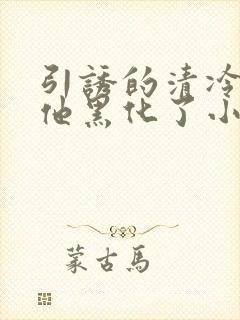 引誘的清冷
他黑化了小
蒙古馬